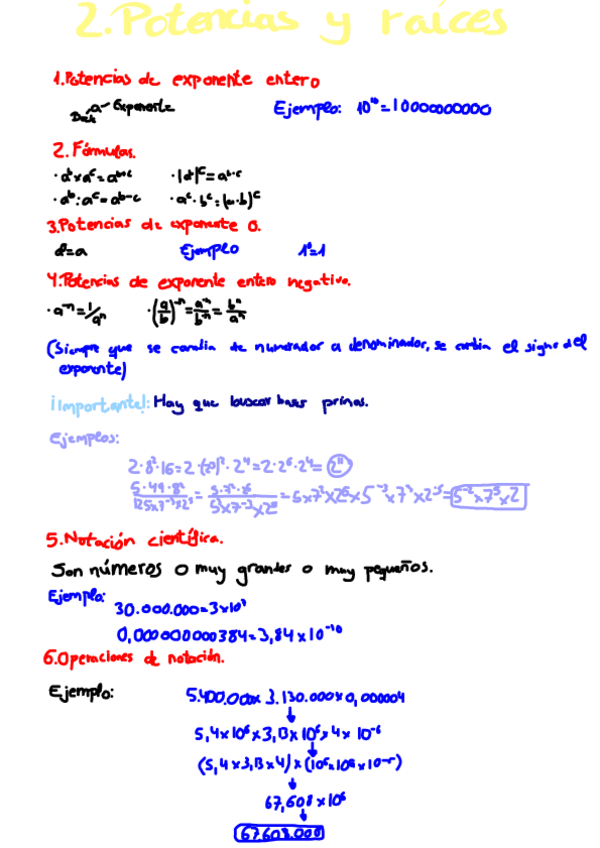 2.Potencias y raíces
1.Potencias de exponente entero
a Exponente Ejemplo: 10¹⁰=10000000000
Base
2. Fórmulas.
· aᵇxaᶜ=aᵇ⁺ᶜ · |aᵇ|ᶜ=aᵇ·ᶜ
· aᵇ:aᶜ=aᵇ⁻ᶜ · aᶜ·bᶜ=(a·b)ᶜ
3.Potencias de exponente 0.
=a Ejemplo 1⁰=1
4.Potencias de exponente entero negativo.
· a⁻ⁿ=1/aⁿ · (a/b)⁻ⁿ=a⁻ⁿ/b⁻ⁿ=bⁿ/aⁿ
(Siempre que se cambia de numerador a denominador, se cambia el signo del
exponente)
¡Importante!: Hay que buscar bases primas.
Ejemplos:
2·8²·16=2·(2³)²·2⁴=2·2⁶·2⁴=2¹¹
5·49·8²
=5⁻²x7⁵x2
5.Notación científica.
Son números o muy grandes o muy pequeños.
Ejemplo:
30.000.000=3x10⁷
0,000000000384=3,84x10⁻¹⁰
6.Operaciones de notación.
Ejemplo: 5.400.00x 3.130.000x0,000004
5,4x10⁶x3,13x10⁶x4x10⁻⁶
(5,4x3,13x4)x(10⁶x10⁶x10⁻⁶)
67,608x10⁶
67.608.000